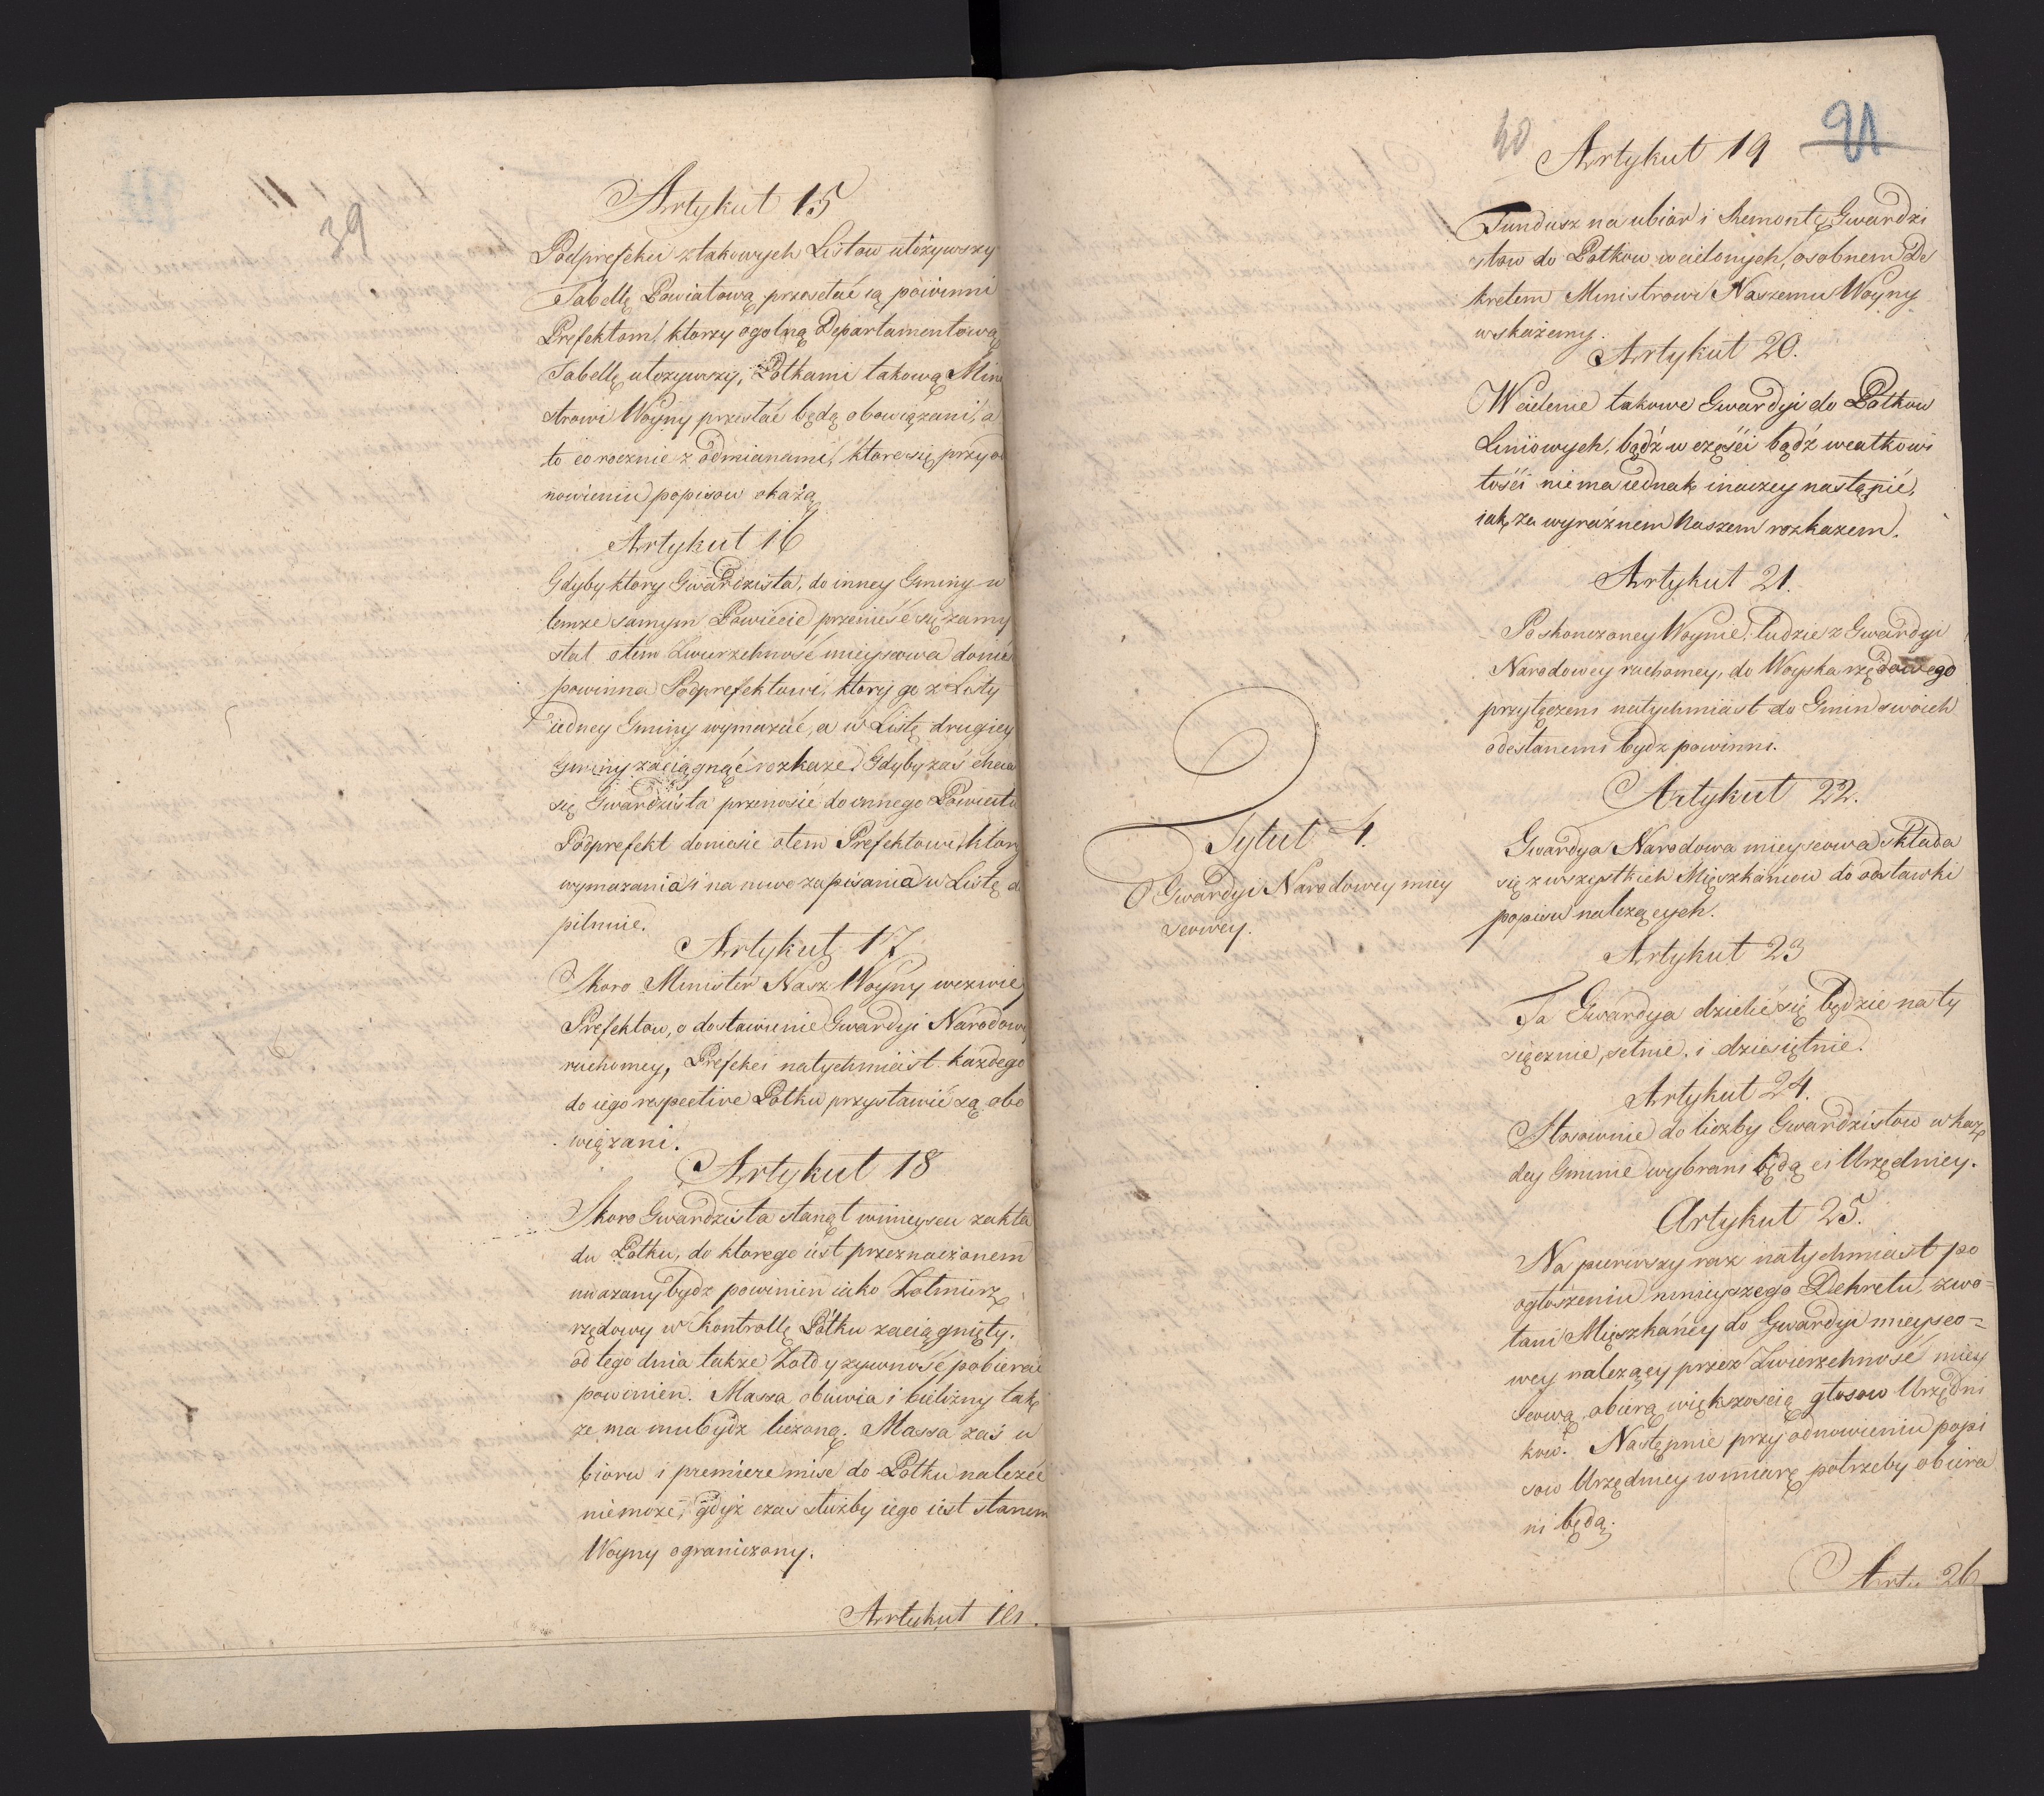 39
Artykuł 15
Podprefekci z takowych Listow ułożywszy
Tabellę Powiatową, przesełać ią powinni
Prefektom, ktorzy ogolną Departamentową
Tabellę ułożywszy, Półkami takową Mini
strowi Woyny przesłać będę obowiązani, a
to corocznie z odmianami, ktore się przy od
nowieniu popisow okażą
Artykuł 16
Gdyby ktory Gwardzista, do inney Gminy w
temże samym Powiecie przenieść się zamy
slał otem Zwierzchność mieyscowa donieś
powinna Podprefektowi, ktory go z Listy
iedney Gminy wymazać, a w Listę drugiey
Gminy zaciągnąć rozkaze. Gdyby zaś chcia
się Gwardzista przenosić do innego Powiatu
Podprefekt doniesie otem Prefektowi, ktory
wymazania i na nowo zapisania w Listę d
pilnuie.
Artykuł 17
Skoro Minister Nasz Woyny wezwie
Prefektow, o dostawienie Gwardyi Narodowey
ruchomey, Prefekci natychmiast każdego
do iego respective Półku przystawić są obo
wiązani.
Artykuł 18
Skoro Gwardzista stanął wmieyscu zakła
du Półku, do ktorego iest przeznaczonem
uwazany bydz powinien iako Zołnierz
rzędowy w Kontrollę Półku zaciągnięty.
od tego dnia także Zołd y zywność pobierać
powinien. Massa obuwia i bielizny tak
ze ma mu bydz liczoną. Massa zaś u
bioru i premiere mise do Półku należeć
niemoże, gdyż czas służby iego iest stanem
Woyny ograniczony.
Artykuł 19.
40
91
Artykuł 19
Fundusz na ubior i Remontę Gwardzi
stow do Połkow wcielonych, osobnem De
kretem Ministrowi Naszemu Woyny
wskażemy.
Artykuł 20.
Wcielenie takowe Gwardyi do Połkow
Liniowych, bądź w części bądź wcałkowi
tości niema iednak inaczey nastąpić,
iak za wyraźnem Naszem rozkazem.
Artykuł 21.
Poskonczoney Woynie, ludzie z Gwardyi
Narodowey ruchomey, do Woyska rzędowego
przyłączeni natychmiast do Gmin swoich
odesłanemi bydz powinni.
Tytuł 4.
O Gwardyi Narodowey miey
scowey.
Artykuł 22.
Gwardya Narodowa mieyscowa składa
się z wszystkich Mięszkańcow do odstawki
popisu należących.
Artykuł 23
Ta Gwardya dzielić się będzie na ty
siącznie, setnie, i dziesiętnie.
Artykuł 24.
Stosownie do liczby Gwardzistow w każ
dey Gminie wybrani będą ci Urzędnicy.
Artykuł 25.
Na pierwszy raz natychmiast po
ogłoszeniu ninieyszego Dekretu, zwo=
łani Mięszkańcy do Gwardyi mieysco=
wey należący przez Zwierzchność miey
scową, obiorą większością głosow Urzędni
kow. Następnie przy odnowieniu popi
sow Urzędnicy w miarę potrzeby obiera
ni będą.
Arty 26